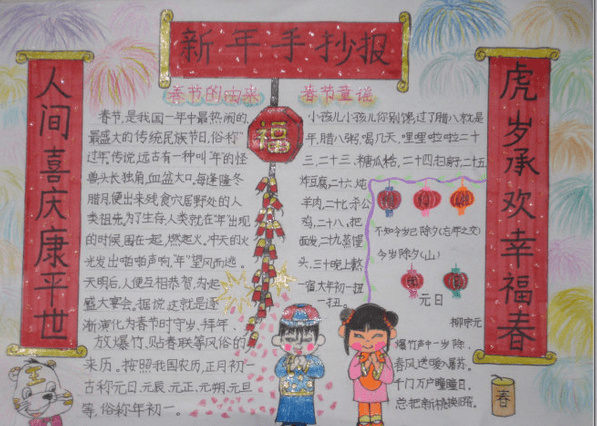 新年手抄报
人间喜庆康平世
春节的由来
春节,是我国一年中最热闹的,
最盛大的传统民族节日,俗称“
过年”传说,远古有一种叫“年”的怪
兽头长独角,血盆大口。每逢隆冬
腊月,便出来残食穴居野处的人
类祖先。为了生存人类就在“年”出现
的时候,围在一起,燃起火。冲天的火
光发出啪啪声响,“年”望风而逃。
天明后,人便互相恭贺,为起
盛大宴会。据说这就是逐
渐演化为春节时守岁、拜年、
放爆竹,贴春联等风俗的
来历。按照我国农历,正月初一
古称元日、元辰、元正、元朔、元旦
等,俗称年初一。
福
春节童谣
小孩儿小孩儿你别馋,过了腊八就是
年,腊八粥,喝几天,哩哩啦啦二十
三,二十三,糖瓜粘,二十四扫房,二十五
炸豆腐,二十六,炖
羊肉,二十七,杀公
鸡,二十八,把
面发,二十九,蒸馒
头,三十晚上熬
一宿大年初一扭
一扭。
不知今岁已除夕(去年之交)
今岁除夕(山)
元日
柳宗元
爆竹声中一岁除,
春风送暖入屠苏。
千门万户曈曈日,
总把新桃换旧符。
虎岁承欢幸福春
王
春